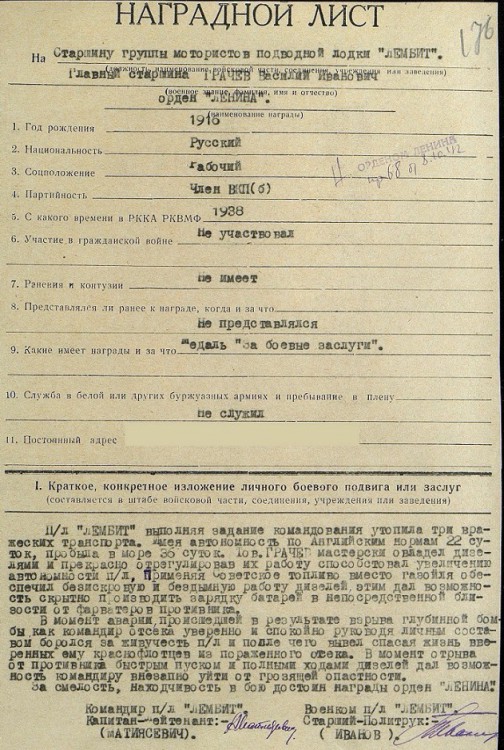 НАГРАДНОЙ ЛИСТ
176
На Старшину группы мотористов подводной лодки "ЛЕМБИТ".
(должность, наименование войсковой части, соединения, учреждения или заведения)
Главный старшина ГРАЧЕВ Василий Иванович
(военское звание, фамилия, имя и отчество)
орден "ЛЕНИНА".
(наименование награды)
1. Год рождения 1916
2. Национальность Русский
3. Соцположение Рабочий
ОРДЕНОМ ЛЕНИНА
4. Партийность Член ВКП(б)
5. С какого времени в РККА РКВМФ 1938
6. Участие в гражданской войне Не участвовал
7. Ранения и контузии Не имеет
8. Представлялся ли ранее к награде, когда и за что
Не представлялся
9. Какие имеет награды и за что Медаль "За боевые заслуги".
10. Служба в белой или других буржуазных армиях и пребывание в плену
Не служил
11. Постоянный адрес
I. Краткое, конкретное изложение личного боевого подвига или заслуг
(составляется в штабе войсковой части, соединения, учреждения или заведения)
П/л "ЛЕМБИТ" выполняя задание командования утопила три вра-
жеских транспорта. Имея автономность по Английским нормам 22 су-
ток, пробыла в море 36 суток. Тов. ГРАЧЕВ мастерски овладел дизе-
лями и прекрасно отрегулировав их работу способствовал увеличению
автономности п/л, Применяя Советское топливо вместо газойля обе-
спечил безискровую и бездымную работу дизелей, этим дал возможно-
сть скрытно производить зарядку батарей в непосредственной бли-
зости от фарватеров противника.
В момент аварии, происшедшей в результате взрыва глубинной бом-
бы как командир отсека уверенно и спокойно руководя личным соста-
вом боролся за живучесть п/л и после чего вывел спасая жизнь вве-
ренных ему краснофлотцев из пораженного отсека. В момент отрыва
от противника быстрым пуском и полными ходами дизелей дал возмож-
ность командиру внезапно уйти от грозящей опасности.
За смелость, находчивость в бою достоин награды орден "ЛЕНИНА"
Командир п/л "ЛЕМБИТ" Военком п/л "ЛЕМБИТ".
Капитан-Лейтенант:- Старший-Политрук:-
(МАТИЯСЕВИЧ). (ИВАНОВ).